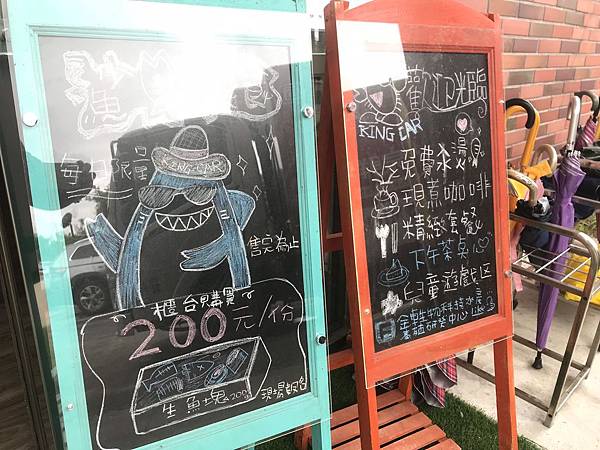 每日限量
KING-CAR
售完為止
櫃台購買
200元/份
生魚塊
200g
現場報名
歡迎光臨
KING CAR
免費泡湯
現煮咖啡
精緻套餐
下午茶點心
兒童遊戲区
金車生物科技水產
養殖研發中心